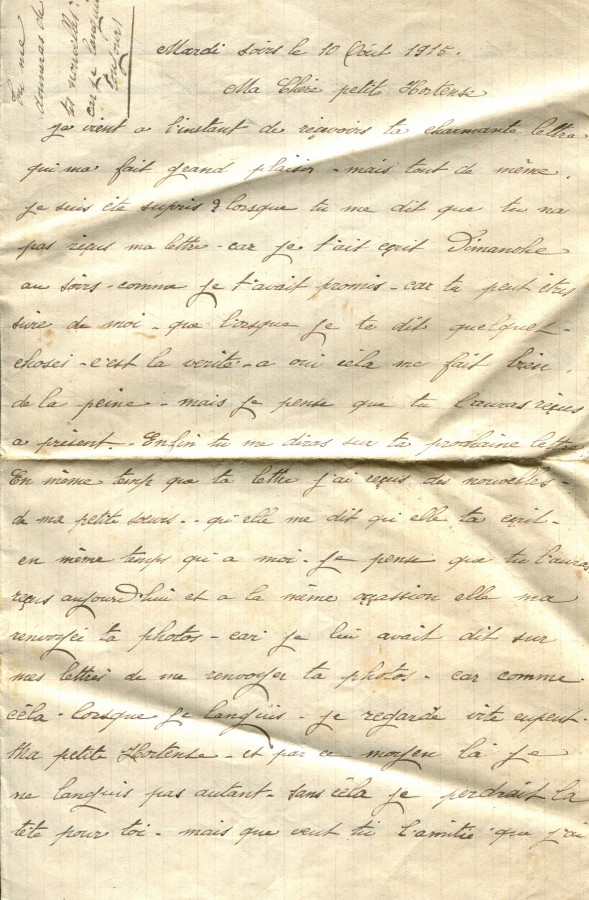 Tu me
donneras de
tes nouvelles
car je languis
toujours
Mardi soirs le 10 Août 1915.
Ma Chère petite Hortense
je vient a l'instant de reçevoirs ta charmante lettre
qui ma fait grand plaisir - mais tout de même.
je suis été supris lorsque tu me dit que tu na
pas reçus ma lettre - car je t'ait ecrit Dimanche
au soirs - comme je t'avait promis - car tu peut êtres
sure de moi - que lorsque je te dit quelquet -
choses - c'est la verite - a oui cela me fait bien.
de la peine - mais je pense que tu l'auras reçus
a présent. Enfin tu me diras sur ta prochaine lettre
En même temp que ta lettre j'ai reçus des nouvelles -
de ma petite soeurs - qu'elle me dit qu'elle ta ecrit -
en même temps qu'a moi. Je pense que tu l'auras
reçus aujourd'hui et a la même occassion elle ma
renvoyée ta photos - car je lui avait dit sur
mes lettres de me renvoyer ta photos - car comme
cèla - lorsque je languis - je regarde vite
Ma petite Hortense - et par ce moyen là je
ne languis pas autant - sans cèla je perdrait la
tête pour toi - mais que veut tu l'amitié que j'ai